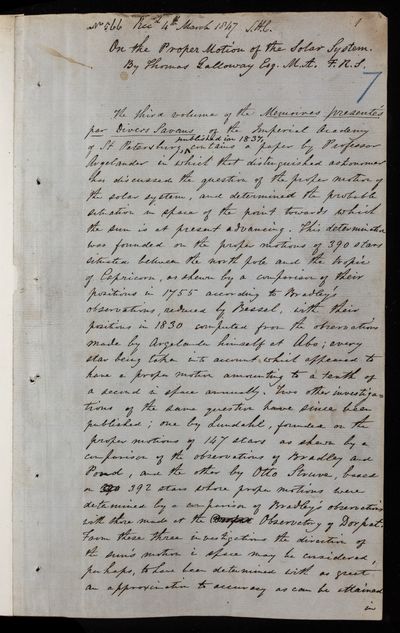 No 566 Recd 4th March 1847 S.H.C.
1
On the Proper Motion of the Solar System.
By Thomas Galloway Esq. M.A. F.R.S.
7
The third volume of the Memoires presentés
par Divers Savans of the Imperial Academy
published in 1837,
of St Petersburg, contains a paper by Professor
Argelander in which that distinguished astronomer
has discussed the question of the proper motion of
the solar system, and determined the probable
situation in space of the point towards which
the sun is at present advancing. This determination
was founded on the proper motions of 390 stars
situated between the north pole and the tropic
of Capricorn, as shewn by a comparison of their
positions in 1755 according to Bradley's
observations, reduced by Bessel, with their
positions in 1830 computed from the observations
made by Argelander himself at Abo; every
star being taken into account which appeared to
have a proper motion amounting to a tenth of
a second in space annually. Two other investiga-
tions of the same question have since been
published; one by Lundahl, founded on the
proper motions of 147 stars as shewn by a
comparison of the observations of Bradley and
Pond, and the other by Otto Struve, based
on 392 stars whose proper motions were
determined by a comparison of Bradley's observations
with those made at the Observatory of Dorpat.
From these three investigations the direction of
the sun's motion in space may be considered,
perhaps, to have been determined with as great
an approximation to accuracy as can be attained
in